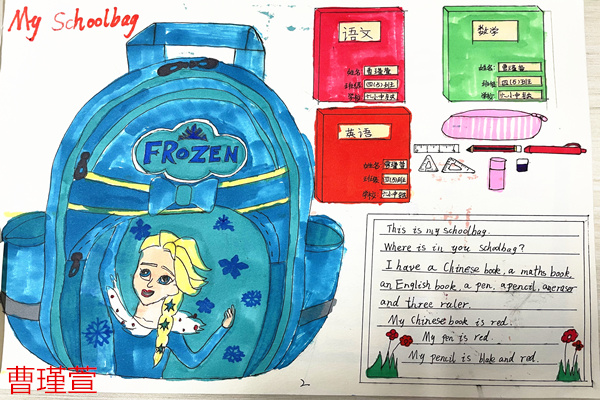 My Schoolbag
FROZEN
语文
姓名: 曹瑾萱
班级: 四(5)班
学校:
数学
姓名: 曹瑾萱
班级: 四(5)班
学校:
英语
姓名: 曹瑾萱
班级: 四(5)班
学校:
This is my schoolbag.
Where is in you schoolbag?
I have a Chinese book, a maths book,
an English book, a pen, a pencil, an eraser
and three ruler.
My Chinese book is red.
My pen is red.
My pencil is blake and red.
曹瑾萱
2